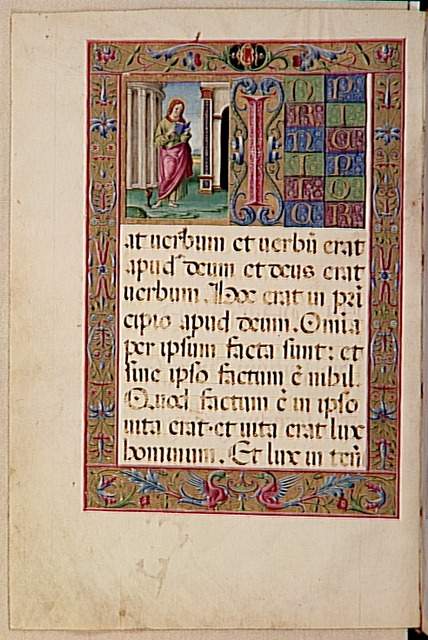 I N P
R I
N C
I P
I O
E R
at uerbum et uerbū erat
apud deum et deus erat
uerbum. Hoc erat in prī
cipio apud deum. Omīa
per ipsum facta sunt: et
sine ipso factum ē nihil.
Quod factum ē in ipso
uita erat. et uita erat lux
hominum. Et lux in ten̄